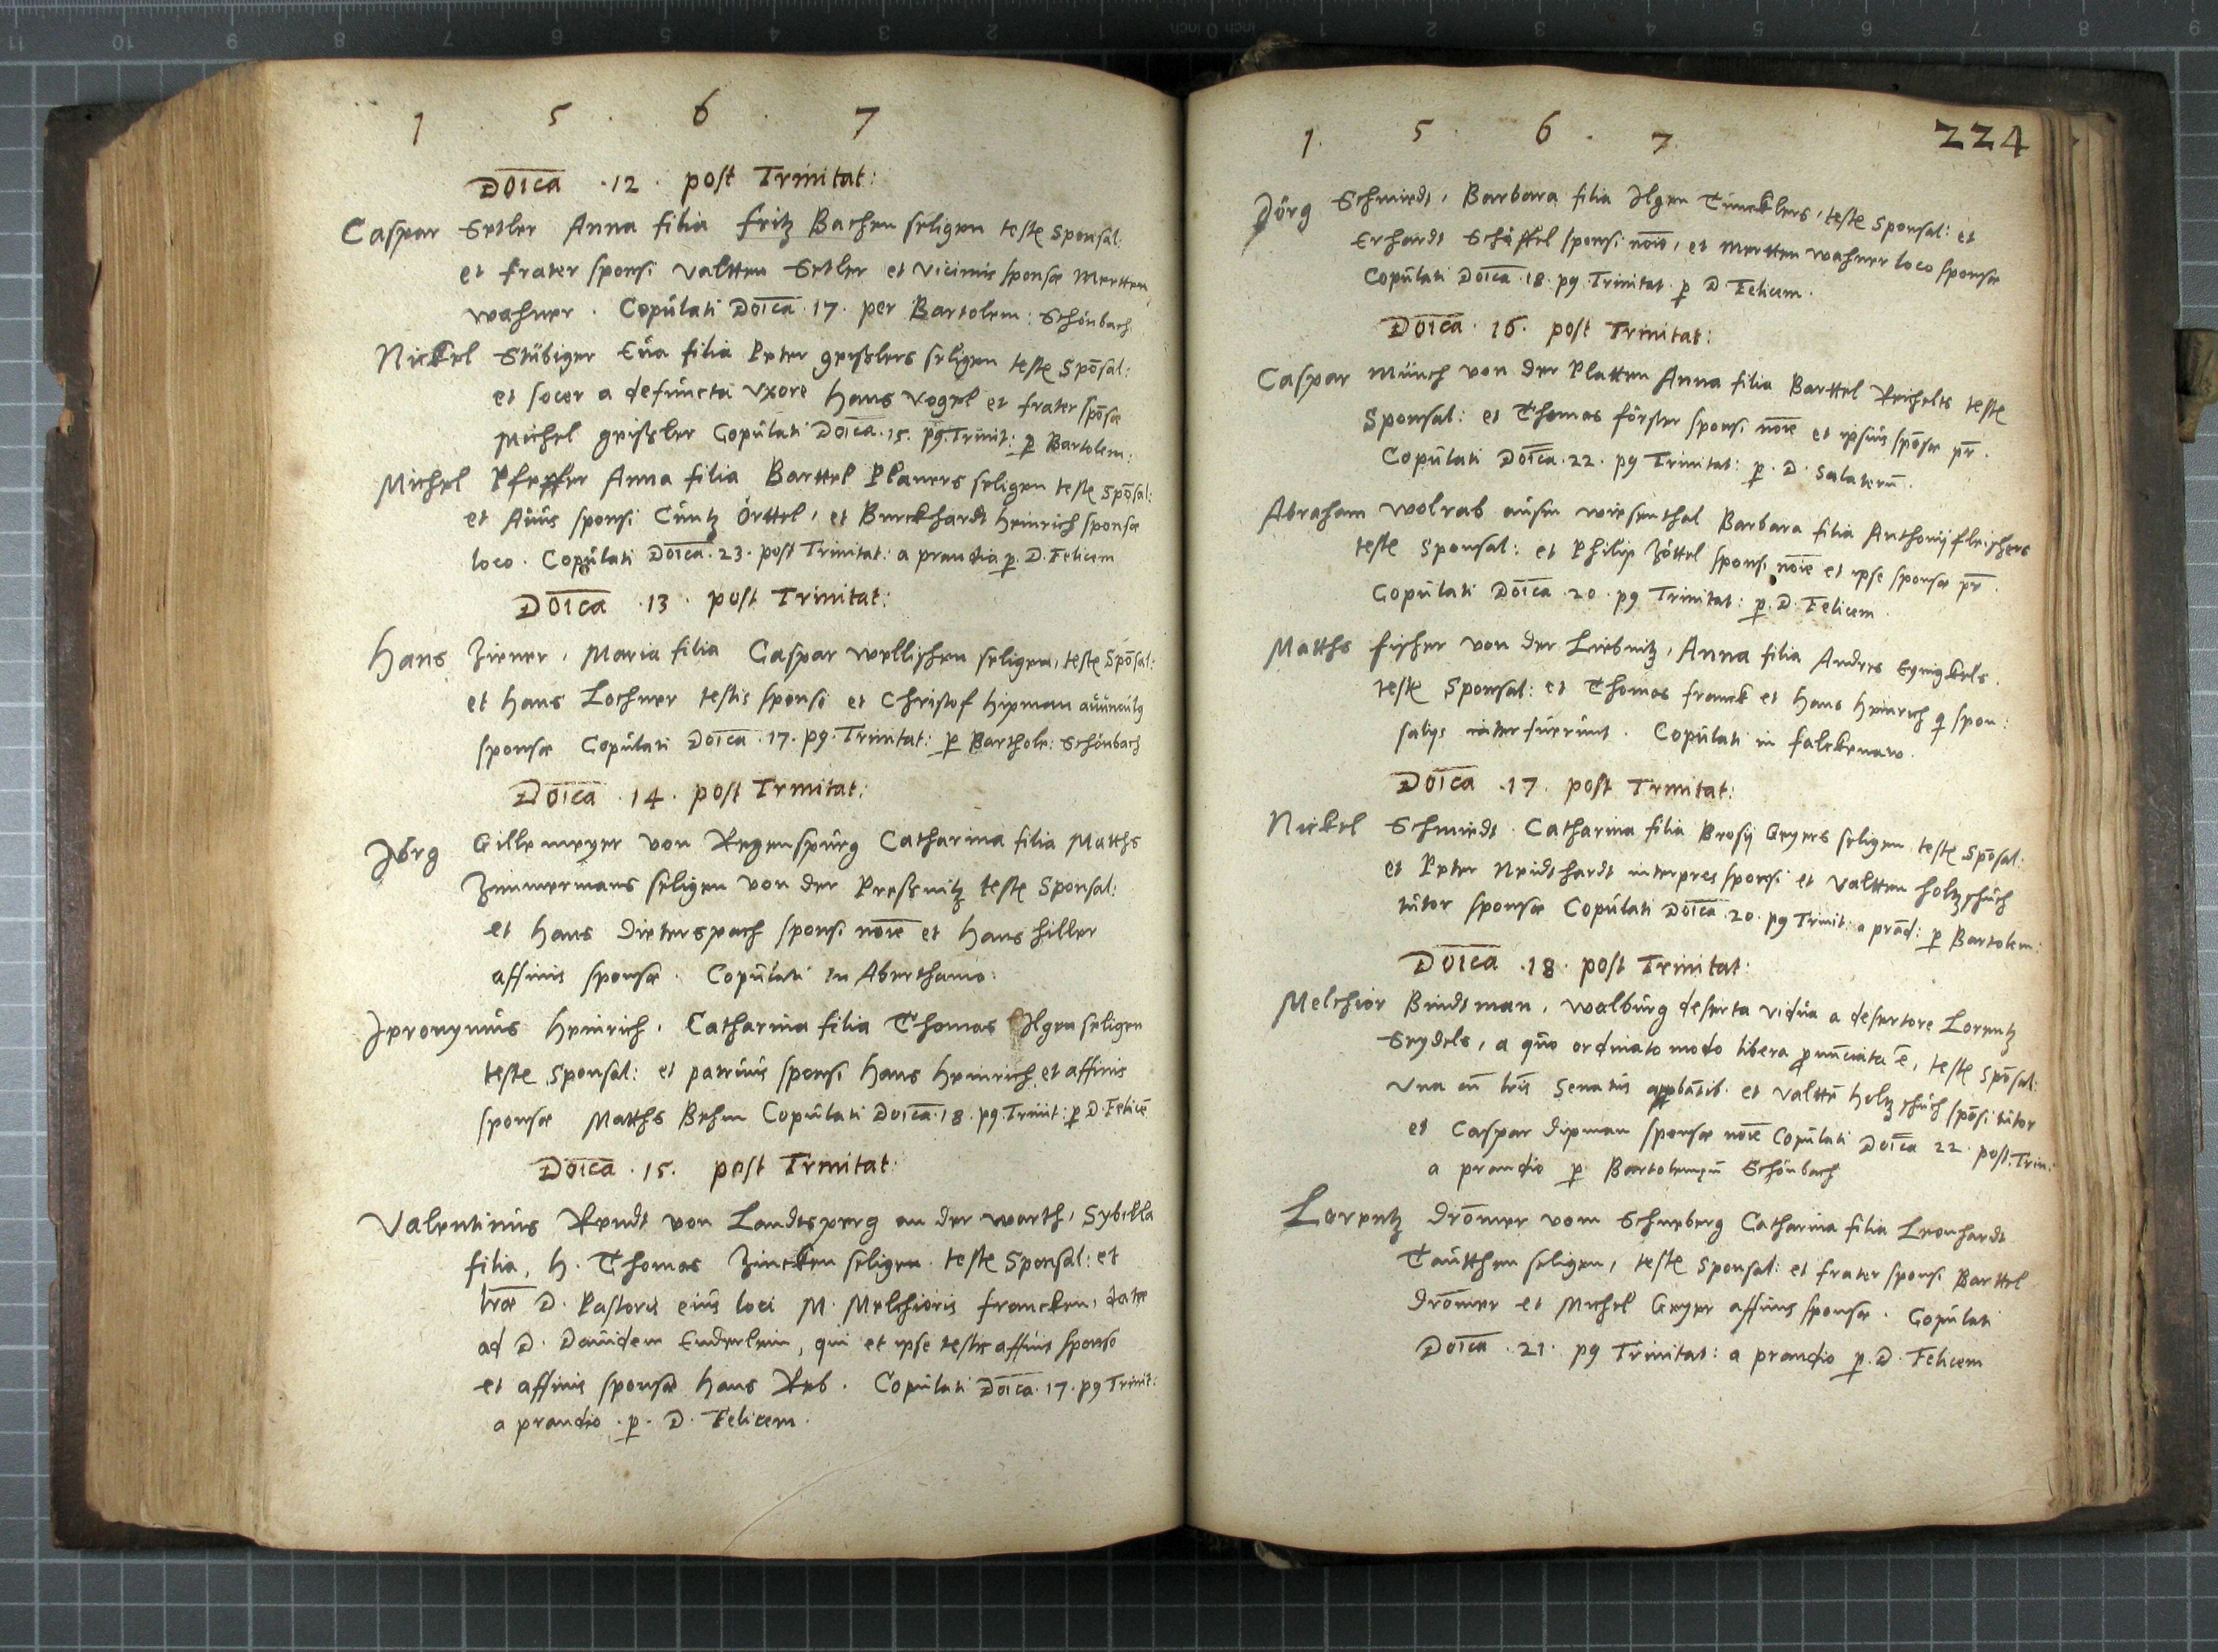 1 . 5 . 6 . 7
Doica . 12 . post Trinitat:
Caspar Setler Anna filia fritz Bachen seligen teste Sponsal:
et frater sponsi valtten Setler et vicinus sponsæ Mertten
wahner . Copulati Doica . 17 . per Bartolem: Schönbach
Nickel Stübiger Eua filia Peter geißlers seligen teste Spōsal:
et socer a defuncta vxore Hans Vogel et frater spōsæ
Michel geißler Copulati Doica . 15 . p9. Trinit: p Bartolem:
Michel Pfeffer Anna filia Barttel Planers seligen teste Spōsal:
et Auus sponsi Cuntz Örttel, et Burckhardt Heinrich sponsæ
loco . Copulati Doica . 23 . post Trinitat: a prandia p . D . Felicem
Doica . 13 . post Trinitat:
Hans Ziener , Maria filia Caspar wellischen seligen, teste Spōsal:
et Hans Lochner testis sponsi et Christof Hipman auunculg
sponsæ Copulati Doica . 17 . p9 . Trinitat: p Barthole: Schönbach
Doica . 14 . post Trinitat:
Jörg Gillemeyer von Regenspurg Catharina filia Matths
Zimmermans seligen von der Preßnitz teste Sponsal:
et Hans Dieterspach sponsi noie et Hans Hiller
affinis sponsæ . Copulati in Aberthamo:
Jeronymus Heinrich . Catharina filia Thomas Ilgen seligen
teste Sponsal: et patruus sponsi Hans Heinrich et affinis
sponsæ Matths Behm Copulati Doica . 18 . p9. Trinit: p D. Felicē
Doica . 15 . post Trinitat:
Valentinus Rendt von Landtsperg an der warth, Sybilla
filia, H. Thomas Zincken seligen . teste Sponsal: et
lræ D. Pastoris eius loci M. Melchioris francken, datæ
ad D. Dauidem Enderlein, qui et ipse testis affinis sponso
et affinis sponsæ Hans Reb . Copulati Doica . 17 . p9 Trinit:
a prandio . p . D . Felicem .
1 . 5 . 6 . 7
224
Jörg Schmiedt , Barbara filia Ilgen Tuncklers, teste Sponsal: et
Erhardt Schäffel sponsi noie, et Mertten wahner loco sponsæ
Copulati Doica . 18 . p9 . Trinitat p D Felicem .
Doica . 16 . post Trinitat:
Caspar Münch von der Platten Anna filia Barttel Reichelts teste
Sponsal: et Thomas förster sponsi noie et ipsius spōsæ pr .
Copulati Doica . 22 . p9 Trinitat: p . D . Salaterū .
Abraham wolrab ausm wiesenthal Barbara filia Anthonij fleischers
teste Sponsal: et Philip Zöttel sponsi noie et ipse sponsæ pr .
Copulati Doica . 20 . p9 Trinitat: p . D . Felicem .
Matths fischer von der Liebnitz , Anna filia Andres Eynigkels .
teste Sponsal: et Thomas franck et Hans Heinrich q spon:
salijs interfuerunt . Copulati in falckenaw .
Doica . 17 . post Trinitat:
Nickel Schmiedt Catharina filia Brosij Geyers seligen teste Spōsal:
et Peter Neidthardt interpres sponsi et Valtten Holtzschuch
tutor sponsæ Copulati Doica . 20 . p9 Trinit: a prād: p Bartolem:
Doica . 18 . post Trinitat:
Melchior Bindtman , walburg deserta vidua a desertore Lorentz
Seydels, a quo ordinato modo libera pnūciata ē, teste Spōsal:
Vna cū lris Senatus appbātib. et Valttē Holtzschuch spōsi tutor
et Caspar Dipman sponsæ noie Copulati Doica 22 . post. Trin:
a prandio p Bartolemęū Schönbach
Lorentz Drömer vom Schneberg Catharina filia Leonhardt
Tautthen seligen, teste Sponsal: et frater sponsi Barttel
Drömer et Michel Geyer affinis sponsæ . Copulati
Doica . 21 . p9 Trinitat: a prandio p . D . Felicem